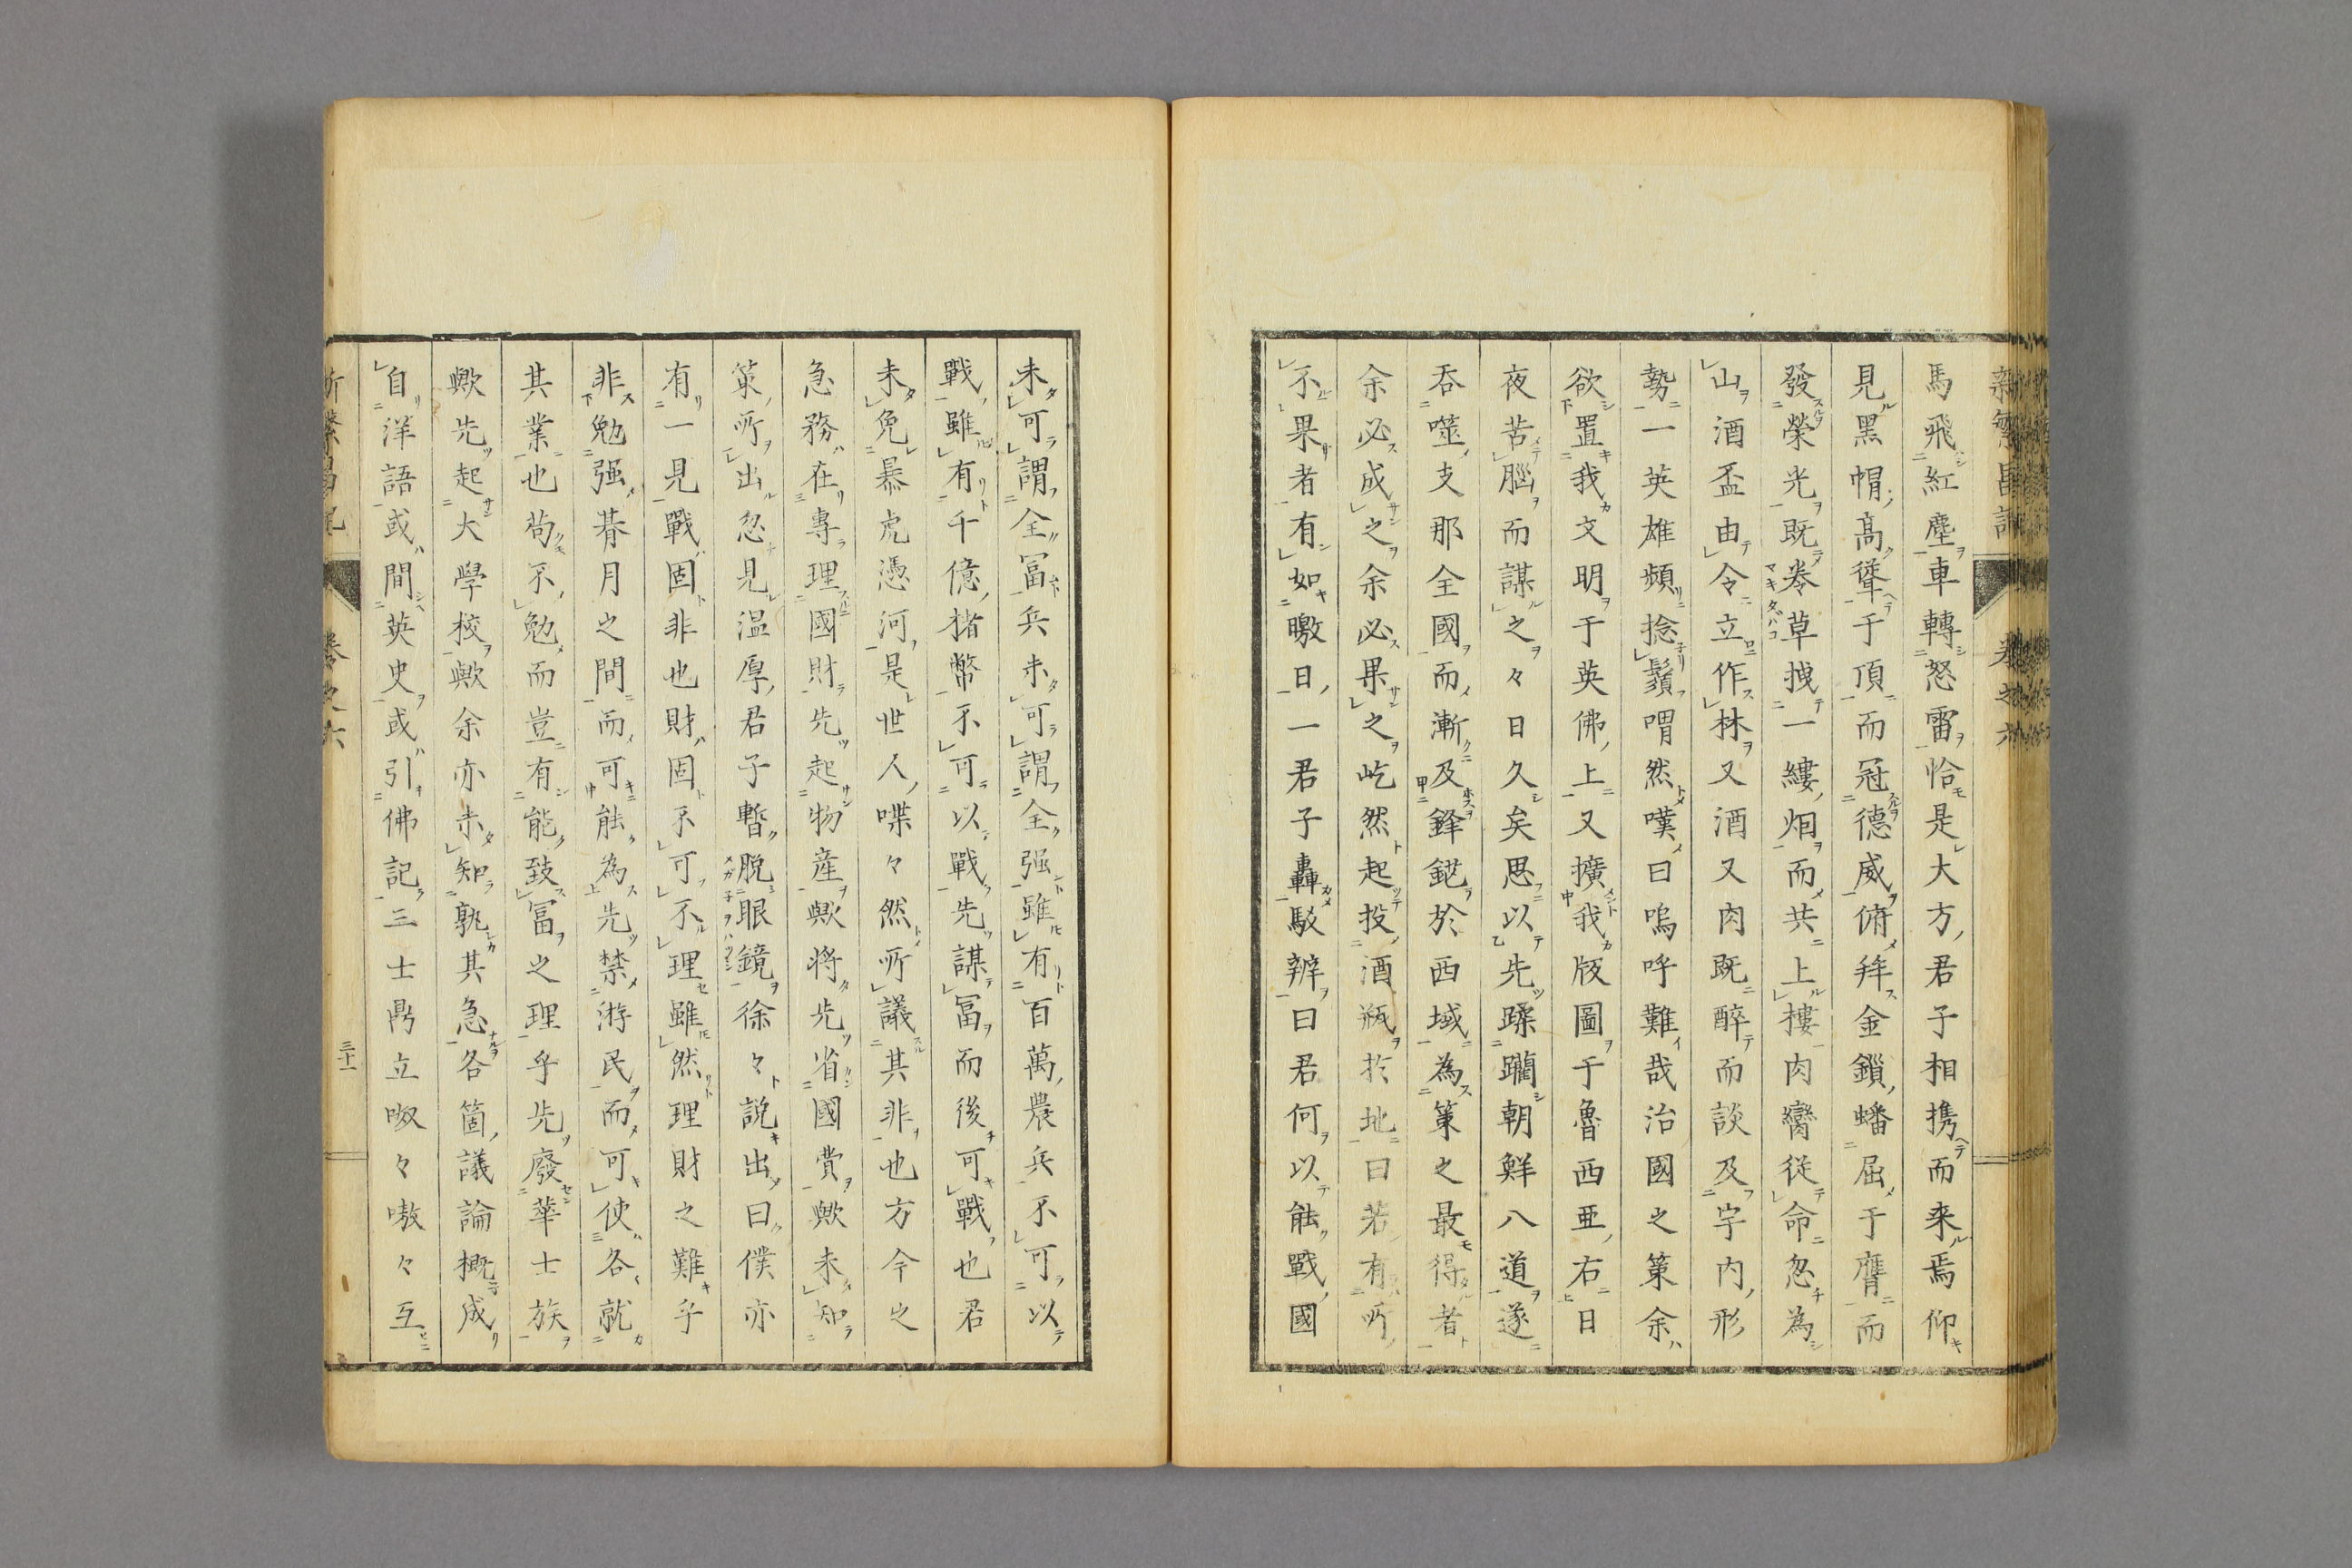 馬飛紅塵車轉怒雷恰是大方君子相携而来焉仰
見黒帽高聳于頂而冠德威俯拜金鎖蟠屈于膺而
發榮光既巻草拽一縷烟而共上樓肉臠從命忽為
山酒盃由令立作林又酒又肉既醉而談及宇内形
勢一英雄頻捻鬚喟然嘆曰嗚呼難哉治國之策余
欲置我文明于英佛上又擴我版圖于魯西亜右日
夜苦腦而謀之々日久矣思以先蹂躪朝鮮八道遂
吞噬支那全國而漸及鋒鋩於西域為策之最得者
余必成之余必果之屹然起投酒瓶於地曰若有所
不果者有如曒日一君子轟駁辨曰君何以能戰國
未可謂全冨兵未可謂全强雖有百萬農兵不可以
戰雖有千億楮幣不可以戰先謀冨而後可戰也君
未免暴虎憑河是世人喋々然所議其非也方今之
急務在專理國財先起物産歟将先省國費歟未知
策所出忽見温厚君子暫脱眼鏡徐々説出曰僕亦
有一見戰固非也財固不可不理雖然理財之難乎
非勉强朞月之間而可能為先禁游民而可使各就
其業也苟不勉而豈有能致冨之理乎先廢華士族
歟先起大學校歟余亦未知孰其急各箇議論概成
自洋語或間英史或引佛記三士鼎立呶々嗷々互
巻之六
三十一